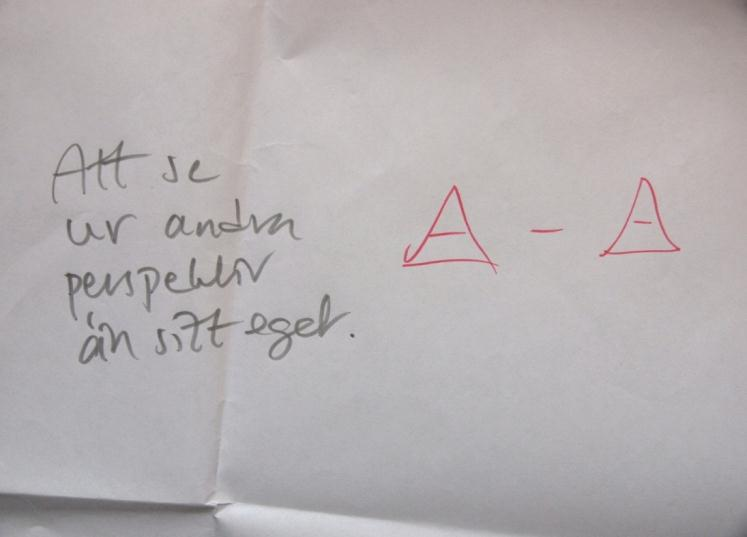 Att se
ur andra
perspektiv
än sitt eget.
A - A